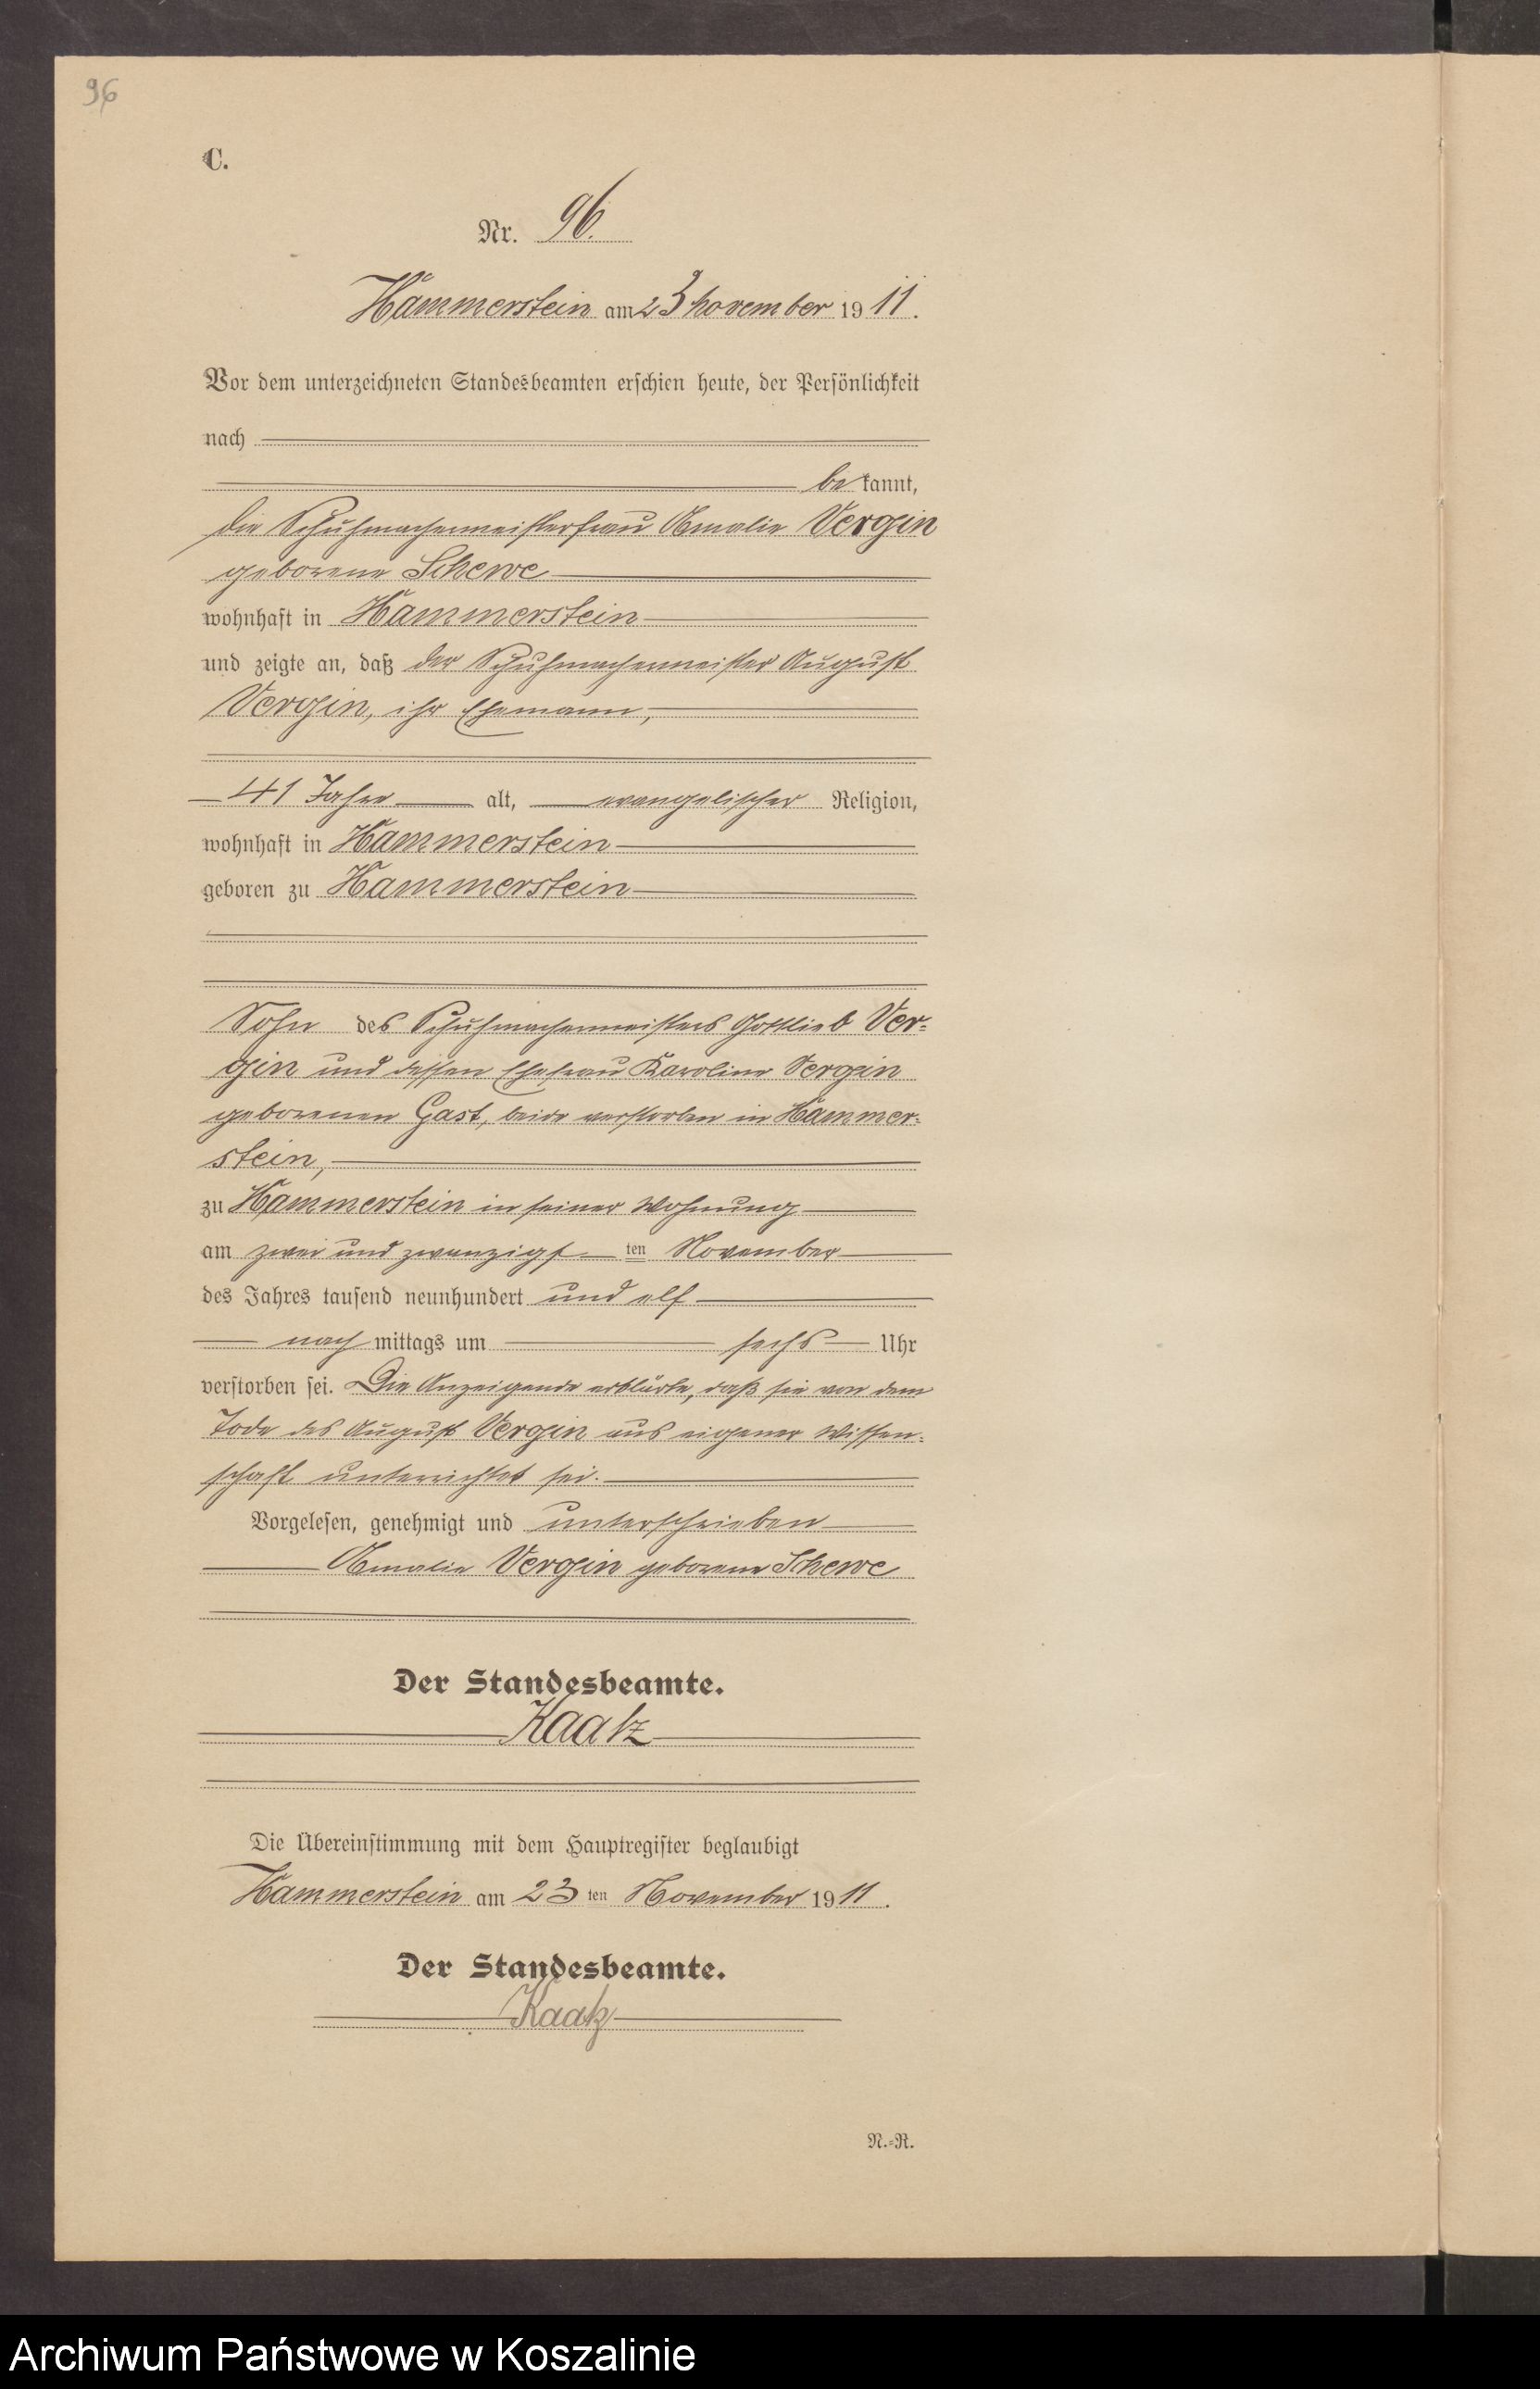 96
C.
Nr. 96.
Hammerstein am 23 November 1911.
Vor dem unterzeichneten Standesbeamten erschien heute, der Persönlichkeit
nach
bekannt,
die Schuhmachermeisterfrau Amalie Vergin
geborene Schewe
wohnhaft in Hammerstein
und zeigte an, daß der Schuhmachermeister August
Vergin, ihr Ehemann,
41 Jahre alt, evangelischer Religion,
wohnhaft in Hammerstein
geboren zu Hammerstein
Sohn des Schuhmachermeisters Gottlieb Ver=
gin und dessen Ehefrau Karoline Vergin
geborenen Gast, beide verstorben in Hammer=
stein,
zu Hammerstein in seiner Wohnung
am zwei und zwanzigsten November
des Jahres tausend neunhundert und elf
nach mittags um sechs Uhr
verstorben sei. Die Anzeigende erklärte, daß sie von dem
Tode des August Vergin aus eigener Wissen=
schaft unterrichtet sei.
Vorgelesen, genehmigt und unterschrieben
Amalie Vergin geborene Schewe
Der Standesbeamte.
Kaatz
Die Übereinstimmung mit dem Hauptregister beglaubigt
Hammerstein am 23ten November 1911.
Der Standesbeamte.
Kaatz
N.=R.
Archiwum Państwowe w Koszalinie